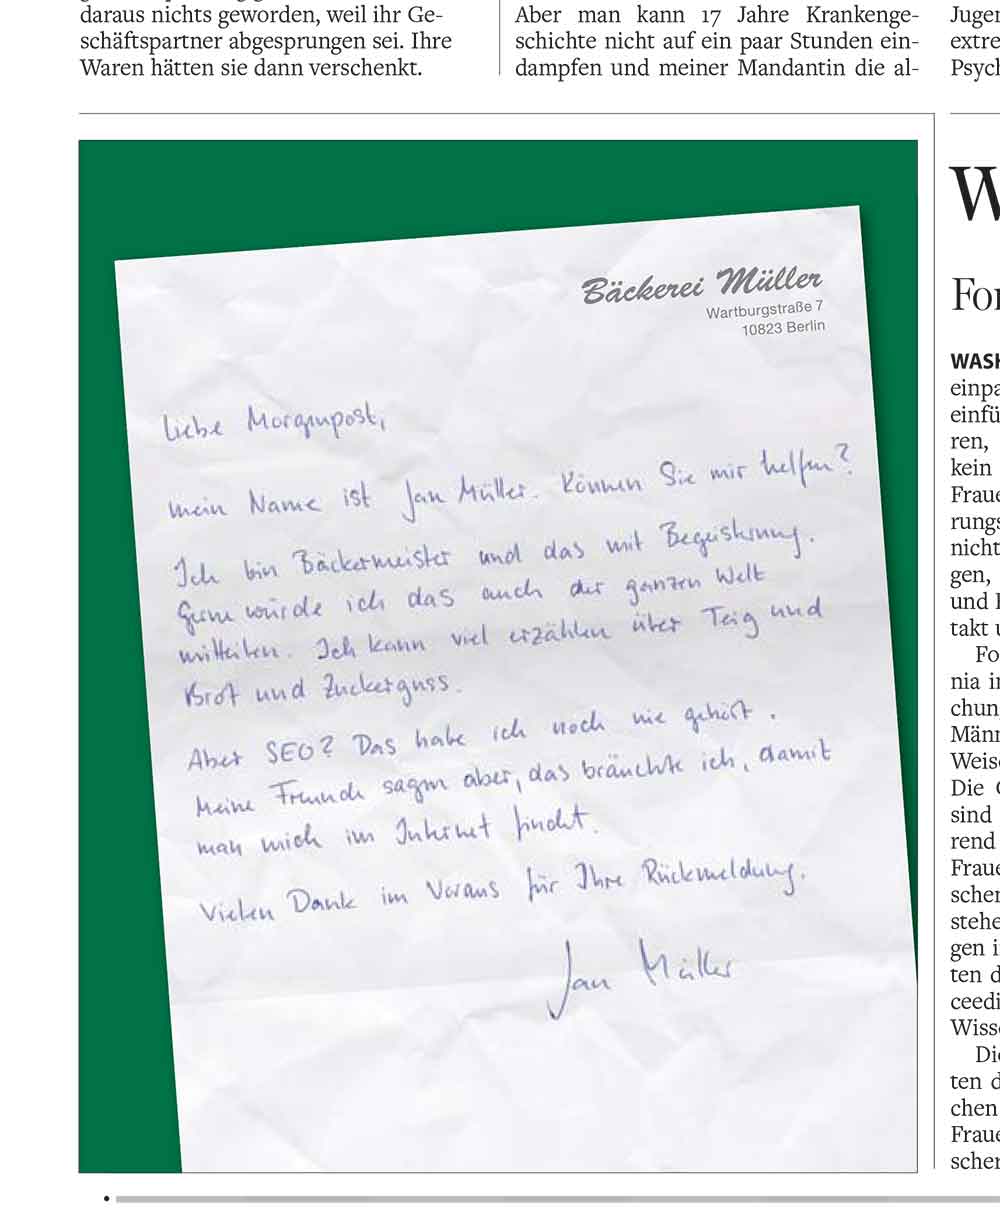 daraus nichts geworden, weil ihr Ge-
schäftspartner abgesprungen sei. Ihre
Waren hätten sie dann verschenkt.
Aber man kann 17 Jahre Krankenge-
schichte nicht auf ein paar Stunden ein-
dampfen und meiner Mandantin die al-
Bäckerei Müller
Wartburgstraße 7
10823 Berlin
Liebe Morgenpost,
mein Name ist Jan Müller. Können Sie mir helfen?
Ich bin Bäckermeister und das mit Begeisterung.
Gerne würde ich das auch der ganzen Welt
mitteilen. Ich kann viel erzählen über Teig und
Brot und Zuckerguss.
Aber SEO? Das habe ich noch nie gehört.
Meine Freunde sagen aber, das bräuchte ich, damit
man mich im Internet findet.
Vielen Dank im Voraus für Ihre Rückmeldung.
Jan Müller
Juger
extre
Psych
W
For
WASH
einpa
einfü
ren,
kein
Fraue
rungs
nicht
gen,
und
takt u
Fo
nia i
chun
Männ
Weise
Die
sind
rend
Fraue
scher
stehe
gen i
ten d
ceedi
Wisse
Die
ten d
chen
Fraue
scher